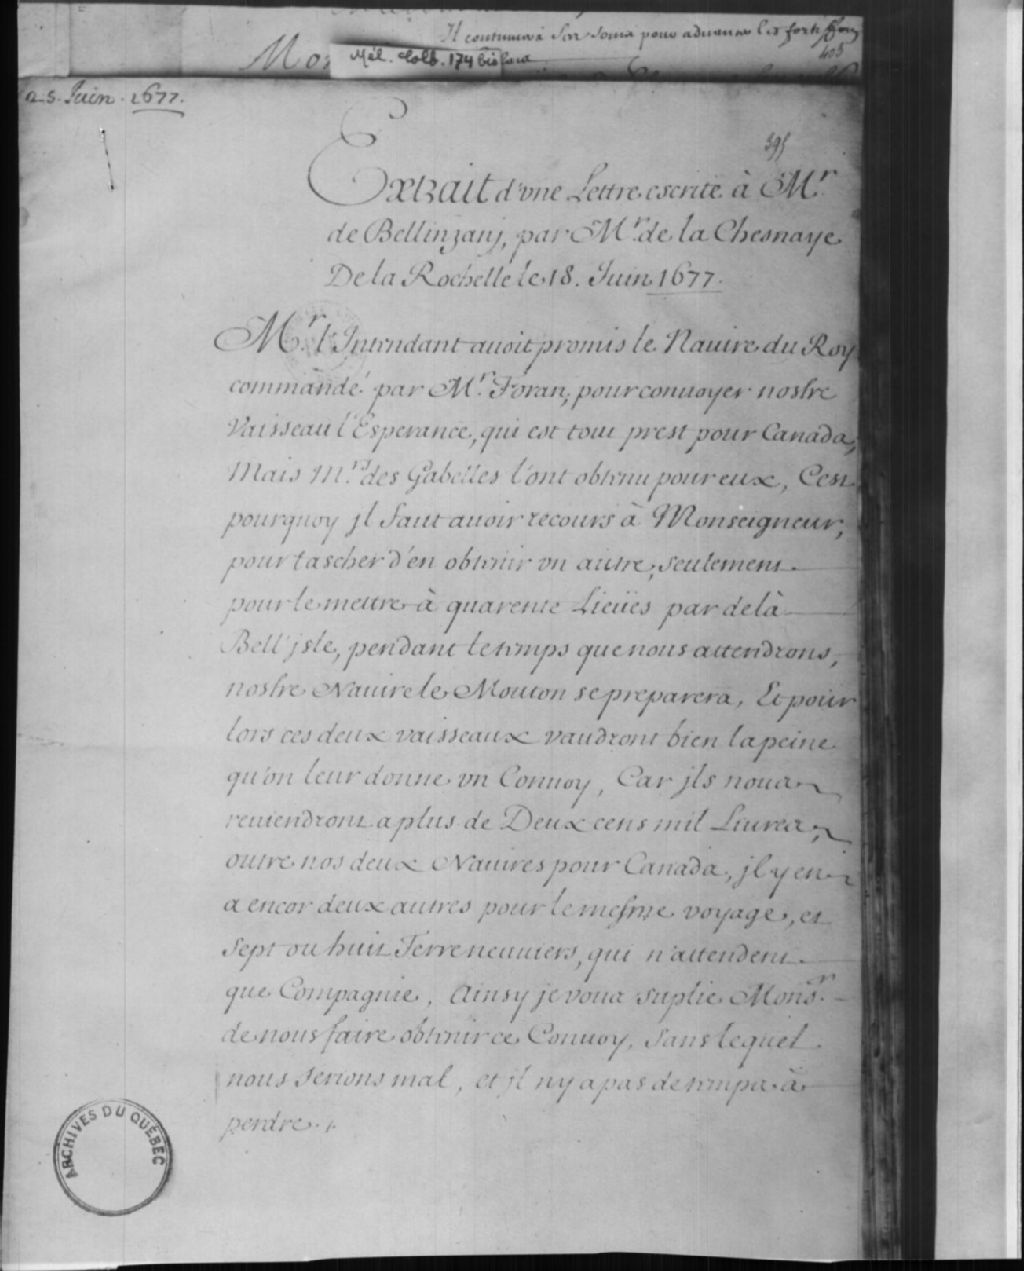 Il continuera ses soins pour advancer les fortiffons
408
Mo
Mél. Colb. 174 bis
25. Juin. 1677.
395
Extrait d'vne Lettre escrite à Mr.
de Bellinzanj, par Mr. de la Chesnaye
De la Rochelle le 18. Juin 1677.
Mr. l'Intendant auoit promis le Nauire du Roy
commandé par Mr. Foran, pour conuoyer nostre
Vaisseau l'Esperance, qui est tout prest pour Canada,
Mais Mrs. des Gabelles l'ont obtenu pour eux, Cest
pourquoy jl faut auoir recours à Monseigneur,
pour tascher d'en obtenir vn autre, seulement
pour le mettre à quarente Lieües par delà
Bell'jsle, pendant le temps que nous attendrons,
nostre Nauire le Mouton se preparera, Et pour
lors ces deux vaisseaux vaudront bien la peine
qu'on leur donne vn Conuoy, Car jls nous
reuiendront a plus de Deux cens mil Liures,
outre nos deux Nauires pour Canada, jl y en
a encor deux autres pour le mesme voyage, et
sept ou huit Terreneuuiers, qui n'attendent
que Compagnie, Ainsy je vous suplie Monsr.
de nous faire obtenir ce Conuoy, sans lequel
nous serions mal, et jl n'y a pas de temps à
perdre ./.
ARCHIVES DU QUÉBEC